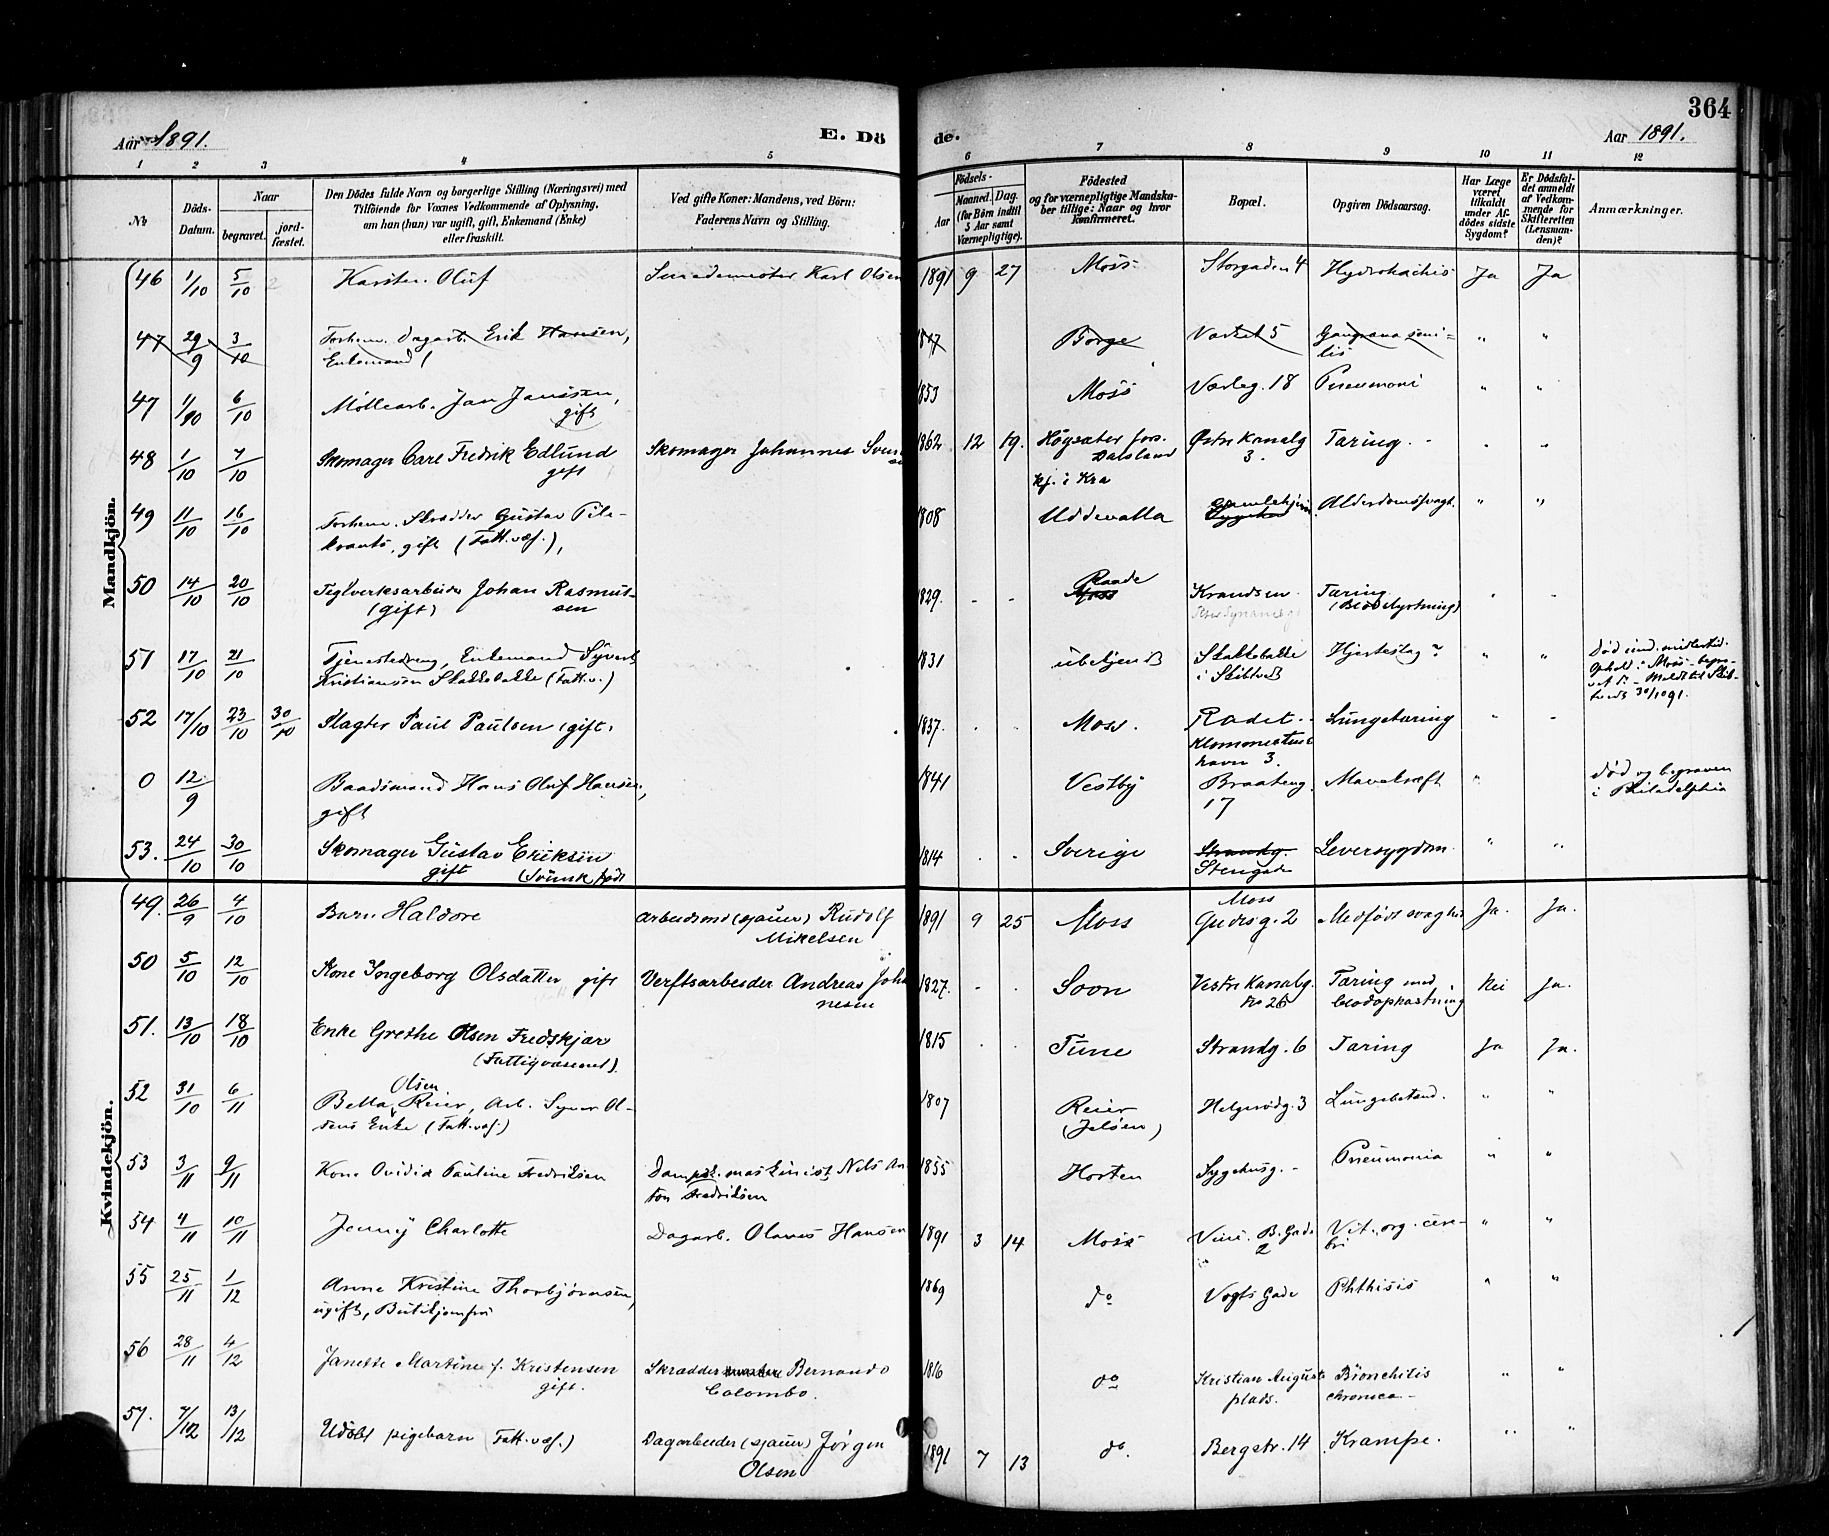 364
Aar 1891.
E. Dö
de.
Aar 1891.
1 2 3 4 5 6 7 8 9 10 11 12
No.
Döds-Datum.
Naar
begravet.
jord-fæstet.
Den Dödes fulde Navn og borgerlige Stilling (Næringsvei) med
Tilföiende for Voxnes Vedkommende af Oplysning,
om han (hun) var ugift, gift, Enkemand (Enke)
eller fraskilt.
Ved gifte Koner: Mandens, ved Börn:
Faderens Navn og Stilling.
Födsels-
Aar
Maaned. Dag.
(for Börn indtil
5 Aar samt
Værnepligtige).
Födested
og for værnepligtige Mandska-
ber tillige: Naar og hvor
konfirmeret.
Bopæl.
Opgiven Dödsaarsag.
Har Læge
været
tilkaldt
under Af-
dödes sidste
Sygdom?
Er Dödsfal-
det anmeldt
af Vedkom-
mende for
Skifteretten
(Lensman-
den)?
Anmærkninger.
Mandkjön.
46 1/10 5/10 Karsten Oluf Smedemester Karl Olsen 1891 9 27 Moss Storgaden 4 Hydrohachis Ja Ja
47 29/9 3/10 Forhenv. Dagarb. Erik Hansen, 1817 Borge Varket 5 Gangræna seni-
Enkemand lis " "
47 1/10 6/10 Møllearb. Jan Janssen, 1853 Moss Værleg. 18 Pneumoni " "
gift
48 1/10 7/10 Skomager Carl Fredrik Edlund Skomager Johannes 1862 12 19. Högsäter fors. Østre Kanalg Tæring. " "
gift Dalsland 3.
kf. i Kra
49 11/10 16/10 Forhenv. Skrædder Gustav Pile- 1808 Uddevalla Gamlehjem Alderdomssvagh. " "
krants, gift (Fatt.væs.),
50 14/10 20/10 Teglverksarbeider Johan Rasmus- 1829. - - Raade Krandsen Tæring
(gift) sen Moss (Blodstyrtning) " "
51 17/10 21/10 Tjenestedreng, Enkemand Syvert 1831 ubekjendt Skakkebakke Hjerteslag? " " Död und. midlertid.
Kristiansen Skakkebakke (Fatt.v.) i Skibtvedt Ophold i Moss - begra-
30/10 91.
52 17/10 23/10 30/10 Slagter Paul Paulsen (gift) 1837. . . Moss. Radet. Lungetæring " "
3.
0 12/9 Baadsmand Hans Oluf Hansen, 1841 Vestby Braateng. Mavekræft " död og begraven
gift 17 i Philadelphia
53. 24/10 30/10 Skomager Gustav Eriksen 1814 . . Sverige Strandg. Leversygdom " "
gift (Svensk født Stengade
Kvindekjön.
49. 26/9 4/10 Barn Haldore Arbeidsmd (sjauer) Rudolf 1891 9 25 Moss Moss Medfødt svaghed Ja. Ja.
Mikelsen Gudesg. 2
50 5/10 12/10 Kone Ingeborg Olsdatter gift Verftsarbeider Andreas Joha 1827. . . Soon Vestre Kanalg. Tæring med Nei Ja.
nesen No 26 blodophostning
51. 13/10 18/10 Enke Grethe Olsen Fredskjær 1815 . . Tune Strandg. 6 Tæring Ja Ja.
(Fattigvæsenet).
52 31/10 6/11 Olsen
Bella Reier, Arb. Syver Ol- 1807 Reier Helgerødg. 3 Lungebetænd. " "
sens Enke (Fatt.væs.) (Jeløen)
53 3/11 9/11 Kone Ovidia Pauline Fredriksen Dampsk. maskinist Nils An- 1855 Horten Sygehusg. - Pneumonia " "
ton Fredriksen
54 4/11 10/11 Jenny Charlotte Dagarb. Olaves Hansen 1891 3 14 Moss B. Gade Vit. org. cere-
2 bri " "
55 25/11 1/12 Anne Kristine Thorbjörnsen, 1869 do Vogts Gade Phthisis " "
ugift, Butikjomfru
56 28/11 4/12 Janette Martine f. Kristensen Skrædder Bernardo 1816 do Kristian Augusts Bronchitis " "
gift. Colombo. plads. chronica -
57. 7/12 13/12 Udøbt pigebarn (Fatt.væs.) Dagarbeider (sjauer) Jørgen 1891 7 13 do. Bergstr. 14 Krampe. " "
Olsen